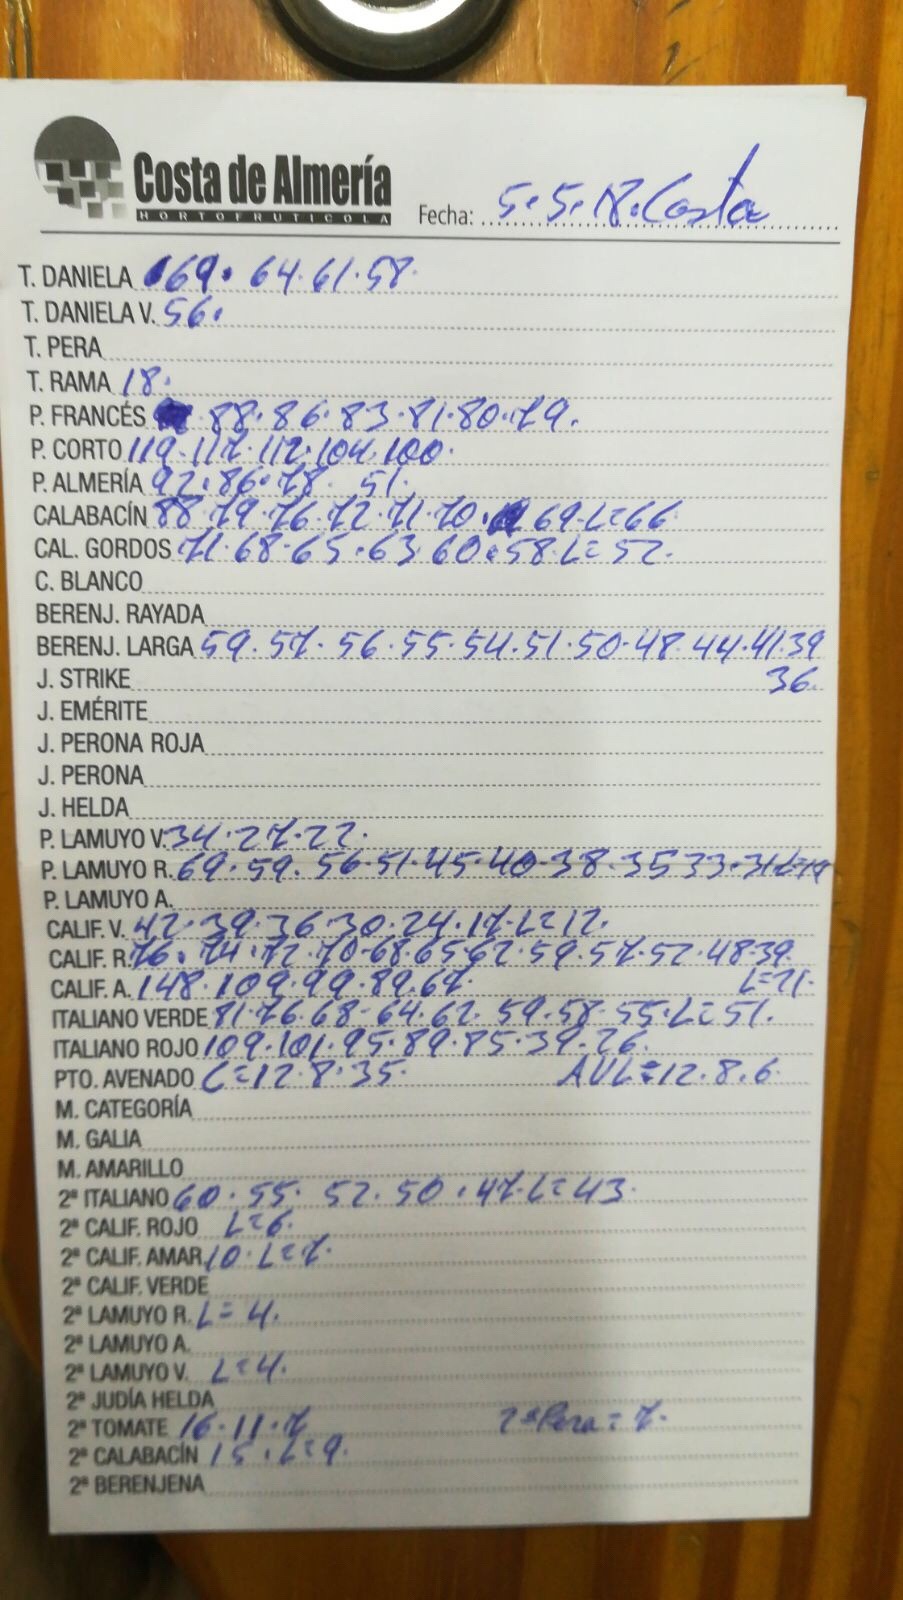 Costa de Almería
HORTOFRUTICOLA
Fecha: 5.5.18. Costa
T. DANIELA 69. 64.61.58.
T. DANIELA V. 56.
T. PERA
T. RAMA 18.
P. FRANCÉS 88.86.83.81.80.79.
P. CORTO 119.117.112.104.100.
P. ALMERÍA 92.86.78. 51.
CALABACÍN 88.79.76.72.71.70. 69.L=66.
CAL. GORDOS 71.68.65.63.60.58.L=52.
C. BLANCO
BERENJ. RAYADA
BERENJ. LARGA 59.57.56.55.54.51.50.48.44.41.39
J. STRIKE 36.
J. EMÉRITE
J. PERONA ROJA
J. PERONA
J. HELDA
P. LAMUYO V. 34.27.22.
P. LAMUYO R. 69.59.56.51.45.40.38.35 33.31.L=19
P. LAMUYO A.
CALIF. V. 42.39.36.30.24.17.L=12.
CALIF. R. 76.74.72.70.68.65.62.59.57.52.48.39.
CALIF. A. 148.109.99.89.67. L=21.
ITALIANO VERDE 81.76.68.64.62.59.58.55.L=51.
ITALIANO ROJO 109.101.95.89.85.39.26.
PTO. AVENADO L=12.8.35. AVL=12.8.6.
M. CATEGORÍA
M. GALIA
M. AMARILLO
2ª ITALIANO 60.55.52.50.47.L=43.
2ª CALIF. ROJO L=6.
2ª CALIF. AMAR 10.L=7.
2ª CALIF. VERDE
2ª LAMUYO R. L=4.
2ª LAMUYO A.
2ª LAMUYO V. L=4.
2ª JUDÍA HELDA
2ª TOMATE 16.11.7 2ª Pera=7.
2ª CALABACÍN 15.L=9.
2ª BERENJENA